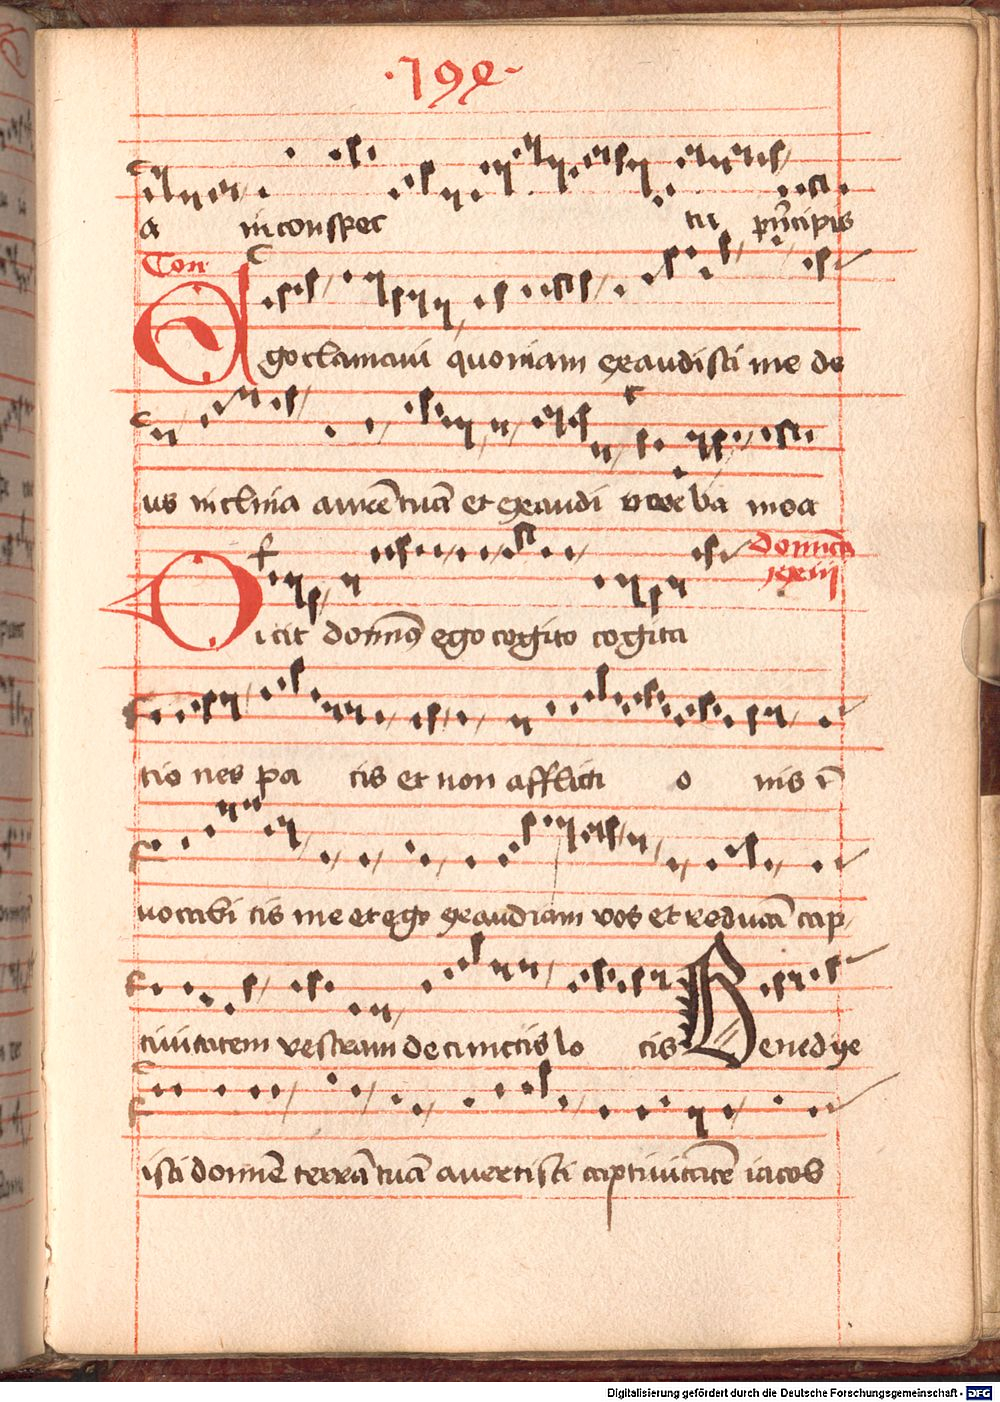 ·199·
a in conspec tu pͥncipis
Con
Ego clamavi quoniam exaudisti me de
us inclina aurē tuā et exaudi verba mea
Dicit domin9 ego cogito cogita
domīca xxiij
tio nes pa cis et non afflicti o nis ī
vocabi tis me et ego exaudiam vos et reducā cap
tivitatem vestram de cunctis lo cis Benedixi
isti domīe terrā tuā avertisti captivitatē iacob
Digitalisierung gefördert durch die Deutsche Forschungsgemeinschaft - DFG